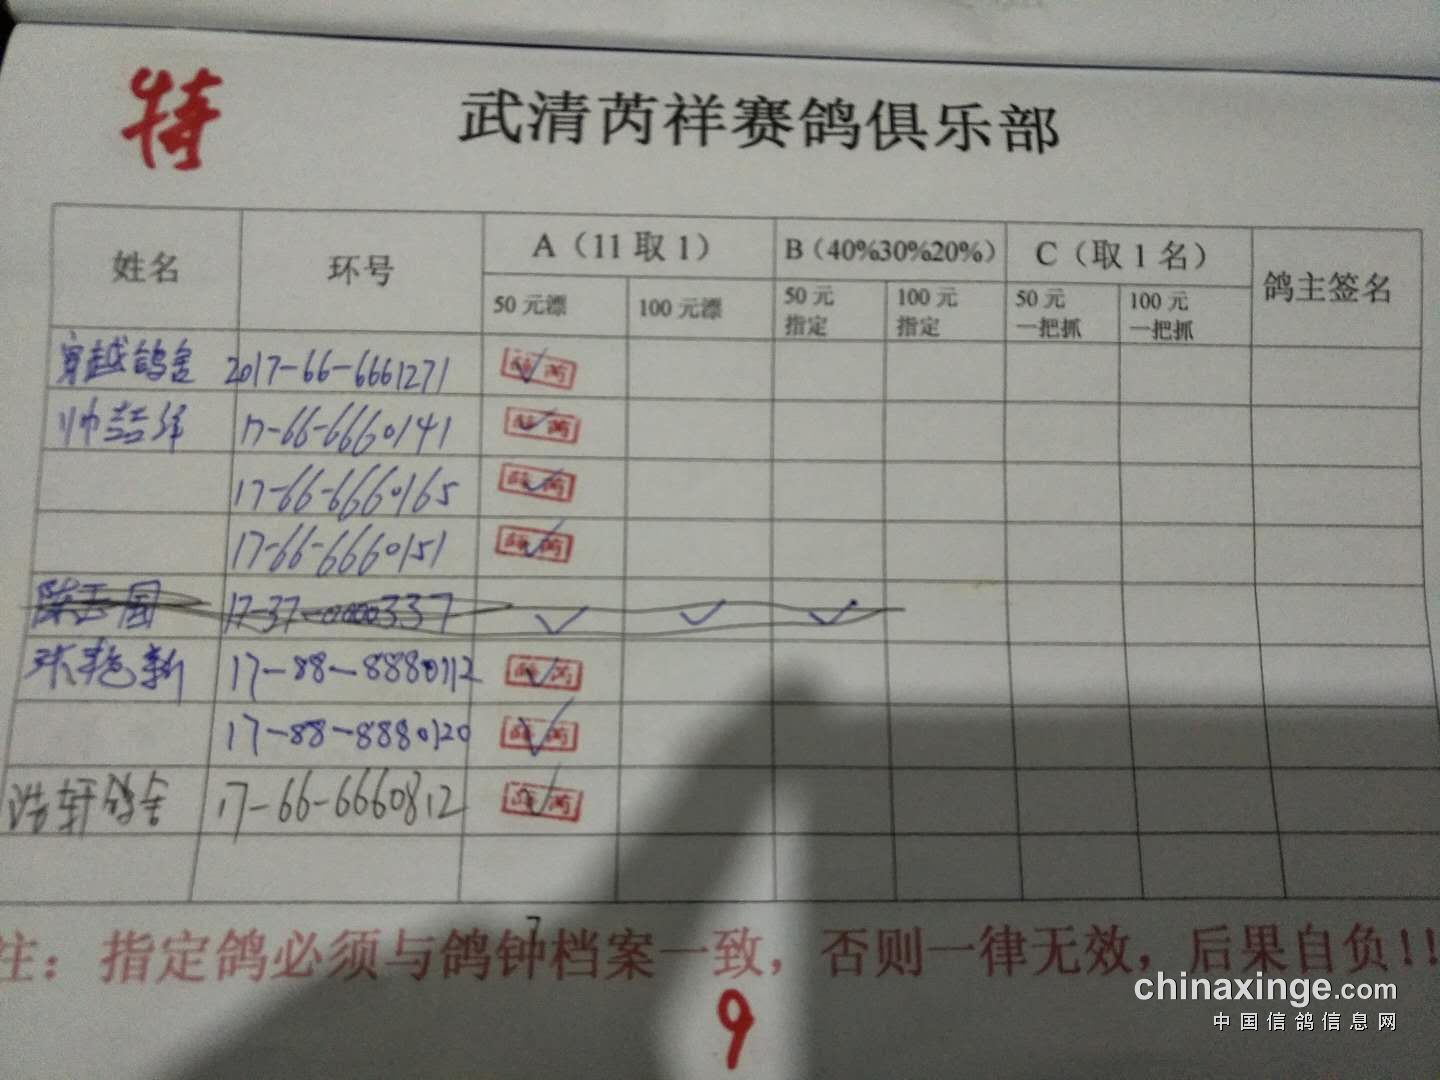 特
武清芮祥赛鸽俱乐部
姓名 环号 A（11取1） B（40%30%20%） C（取1名） 鸽主签名
50元漂 100元漂 50元指定 100元指定 50元一把抓 100元一把抓
穿越鸽舍 2017-66-6661271
帅喆绎 17-66-6660141
17-66-6660165
17-66-6660151
陈玉国 17-37-0000337
张艳新 17-88-8880112
17-88-8880120
浩轩鸽舍 17-66-6660812
7
注：指定鸽必须与鸽钟档案一致，否则一律无效，后果自负!!
9
chinaxinge.com
中国信鸽信息网